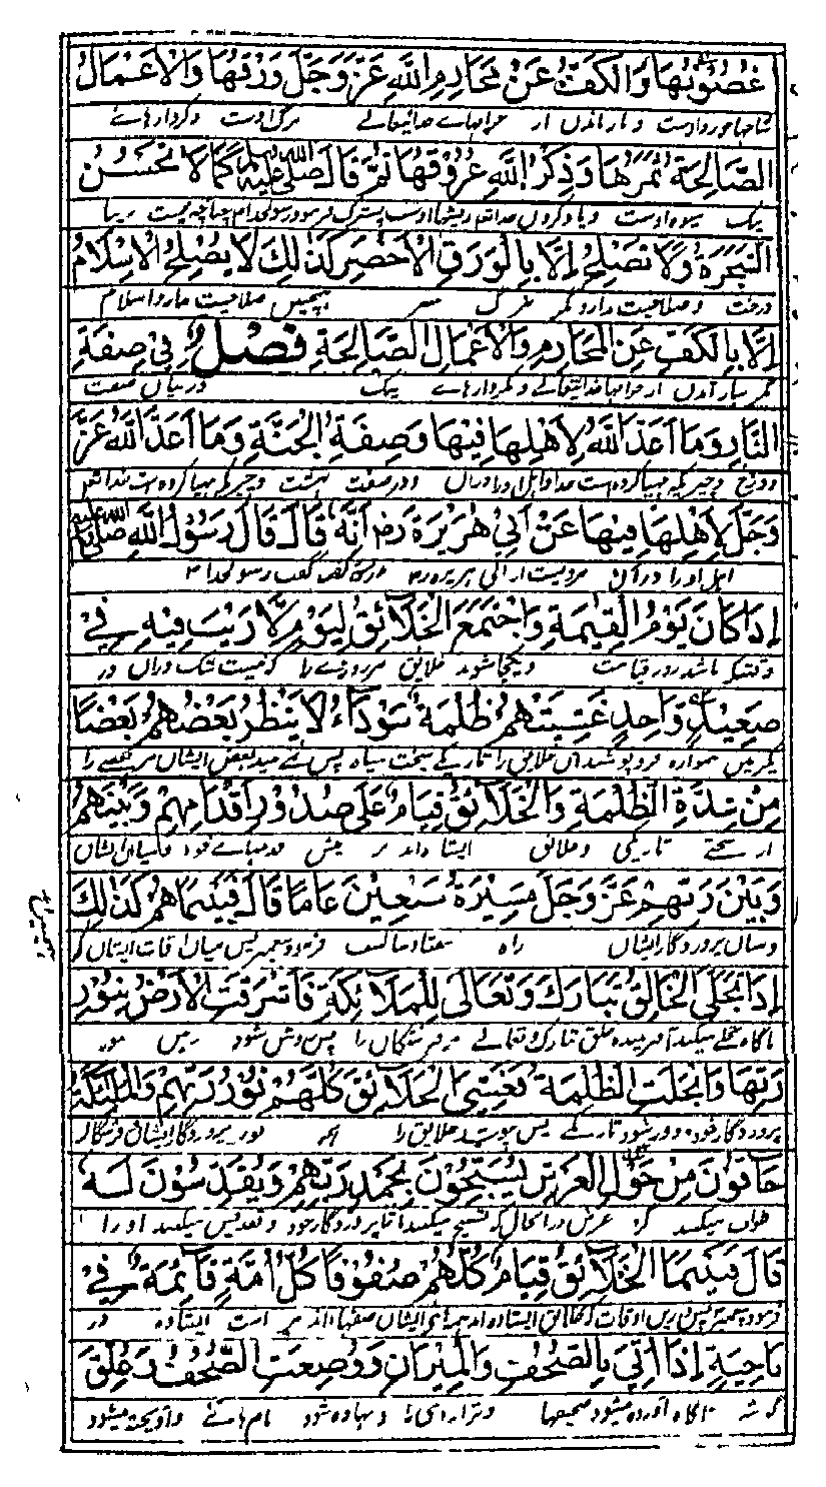 غُصُوْنُهَا وَالْكَفُّ عَنْ مَحَارِمِ اللّٰهِ عَزَّ وَجَلَّ وَرَقُهَا وَالْاَعْمَالُ
شاخهای اوست و باز ماندن از حرامهای خدایتعالی برگ اوست و کردارهای
الصَّالِحَةُ ثَمَرُهَا وَذِكْرُ اللّٰهِ عُرُوْقُهَا ثُمَّ قَالَ صلى الله عليه وسلم كَمَا لَا تَحْسُنُ
نیک میوه اوست و یاد کردن خدا ریشهای اوست پستر فرمود رسولخدا چنانچه نیست زیبا
الشَّجَرَةُ وَلَا تَصْلُحُ اِلَّا بِالْوَرَقِ الْاَخْضَرِ كَذٰلِكَ لَا يَصْلُحُ الْاِسْلَامُ
درخت و صلاحیت ندارد مگر ببرگ سبز همچنین صلاحیت ندارد اسلام
اِلَّا بِالْكَفِّ عَنِ الْمَحَارِمِ وَالْاَعْمَالِ الصَّالِحَةِ فَصْلٌ فِىْ صِفَةِ
مگر بباز ماندن از حرامها خدایتعالی و کردارهای نیک در بیان صفت
النَّارِ وَمَا اَعَدَّ اللّٰهُ لِاَهْلِهَا فِيْهَا وَصِفَةِ الْجَنَّةِ وَمَا اَعَدَّ اللّٰهُ عَزَّ
دوزخ و چیزیکه مهیا کرده است خدا و اهل او را دران و در صفت بهشت و چیزیکه مهیا کرده است خدایتعالی
وَجَلَّ لِاَهْلِهَا فِيْهَا عَنْ اَبِىْ هُرَيْرَةَ رض اَنَّهٗ قَالَ قَالَ رَسُوْلُ اللّٰهِ صلى الله عليه وسلم
اهل او را در آن مرویست از ابی هریره رض گفت گفت رسولخدا
اِذَا كَانَ يَوْمُ الْقِيٰمَةِ وَاجْتَمَعَ الْخَلَآئِقُ لِيَوْمٍ لَّا رَيْبَ فِيْهِ فِىْ
وقتیکه باشد روز قیامت و یکجا شوند خلایق مر روزی را که نیست شک دران در
صَعِيْدٍ وَّاحِدٍ غَشِيَتْهُمْ ظُلْمَةٌ سَوْدَآءُ لَا يَنْظُرُ بَعْضُهُمْ بَعْضًا
یک زمین همواره فرو پوشد آن خلایق را تاریکی سخت سیاه پس نمی بیند بعض ایشان مر بعضے را
مِنْ شِدَّةِ الظُّلْمَةِ وَالْخَلَآئِقُ قِيَامٌ عَلٰى صُدُوْرِ اَقْدَامِهِمْ وَبَيْنَهُمْ
از سختی تاریکی و خلائق ایستاده اند بر پیش قدمهای خود و میان ایشان
وَبَيْنَ رَبِّهِمْ عَزَّ وَجَلَّ مَسِيْرَةُ سَبْعِيْنَ عَامًا قَالَ فَبَيْنَمَا هُمْ كَذٰلِكَ
و میان پروردگار ایشان راه هفتاد سال فرمود پیغمبر پس میان اوقات ایشان که
اِذَا تَجَلَّى الْخَالِقُ تَبَارَكَ وَتَعَالٰى لِلْمَلَآئِكَةِ فَاَشْرَقَتِ الْاَرْضُ بِنُوْرِ
ناگاه تجلی میکند آفریننده خلق تبارک و تعالی مر فرشتگان را پس روشن شود زمین بنور
رَبِّهَا وَانْجَلَتِ الظُّلْمَةُ فَغَشِىَ الْخَلَآئِقَ كُلَّهُمْ نُوْرُ رَبِّهِمْ وَالْمَلٰٓئِكَةُ
پروردگار خود و دور شود تاریکی پس بپوشد خلایق را همه نور پروردگار ایشان و فرشتگان
حَآفُّوْنَ مِنْ حَوْلِ الْعَرْشِ يُسَبِّحُوْنَ بِحَمْدِ رَبِّهِمْ وَيُقَدِّسُوْنَ لَهٗ
طواف میکنند گرد عرش در انحال که تسبیح میکنند با ثنا پروردگار خود و تقدیس میکنند او را
قَالَ فَبَيْنَمَا الْخَلَآئِقُ قِيَامٌ كُلُّهُمْ صُفُوْفًا كُلُّ اُمَّةٍ قَآئِمَةٌ فِىْ
فرمود پیغمبر پس درین اوقات که خلایق ایستاده اند همه ایشان صفها اند هر امت ایستاده در
نَاحِيَةٍ اِذَا اُتِىَ بِالصُّحُفِ وَالْمِيْزَانِ وَوُضِعَتِ الصُّحُفُ وَعُلِّقَ
گوشه ناگاه آورده میشود صحیفها و ترازو و نهاده شود نامهای و آویخته میشود